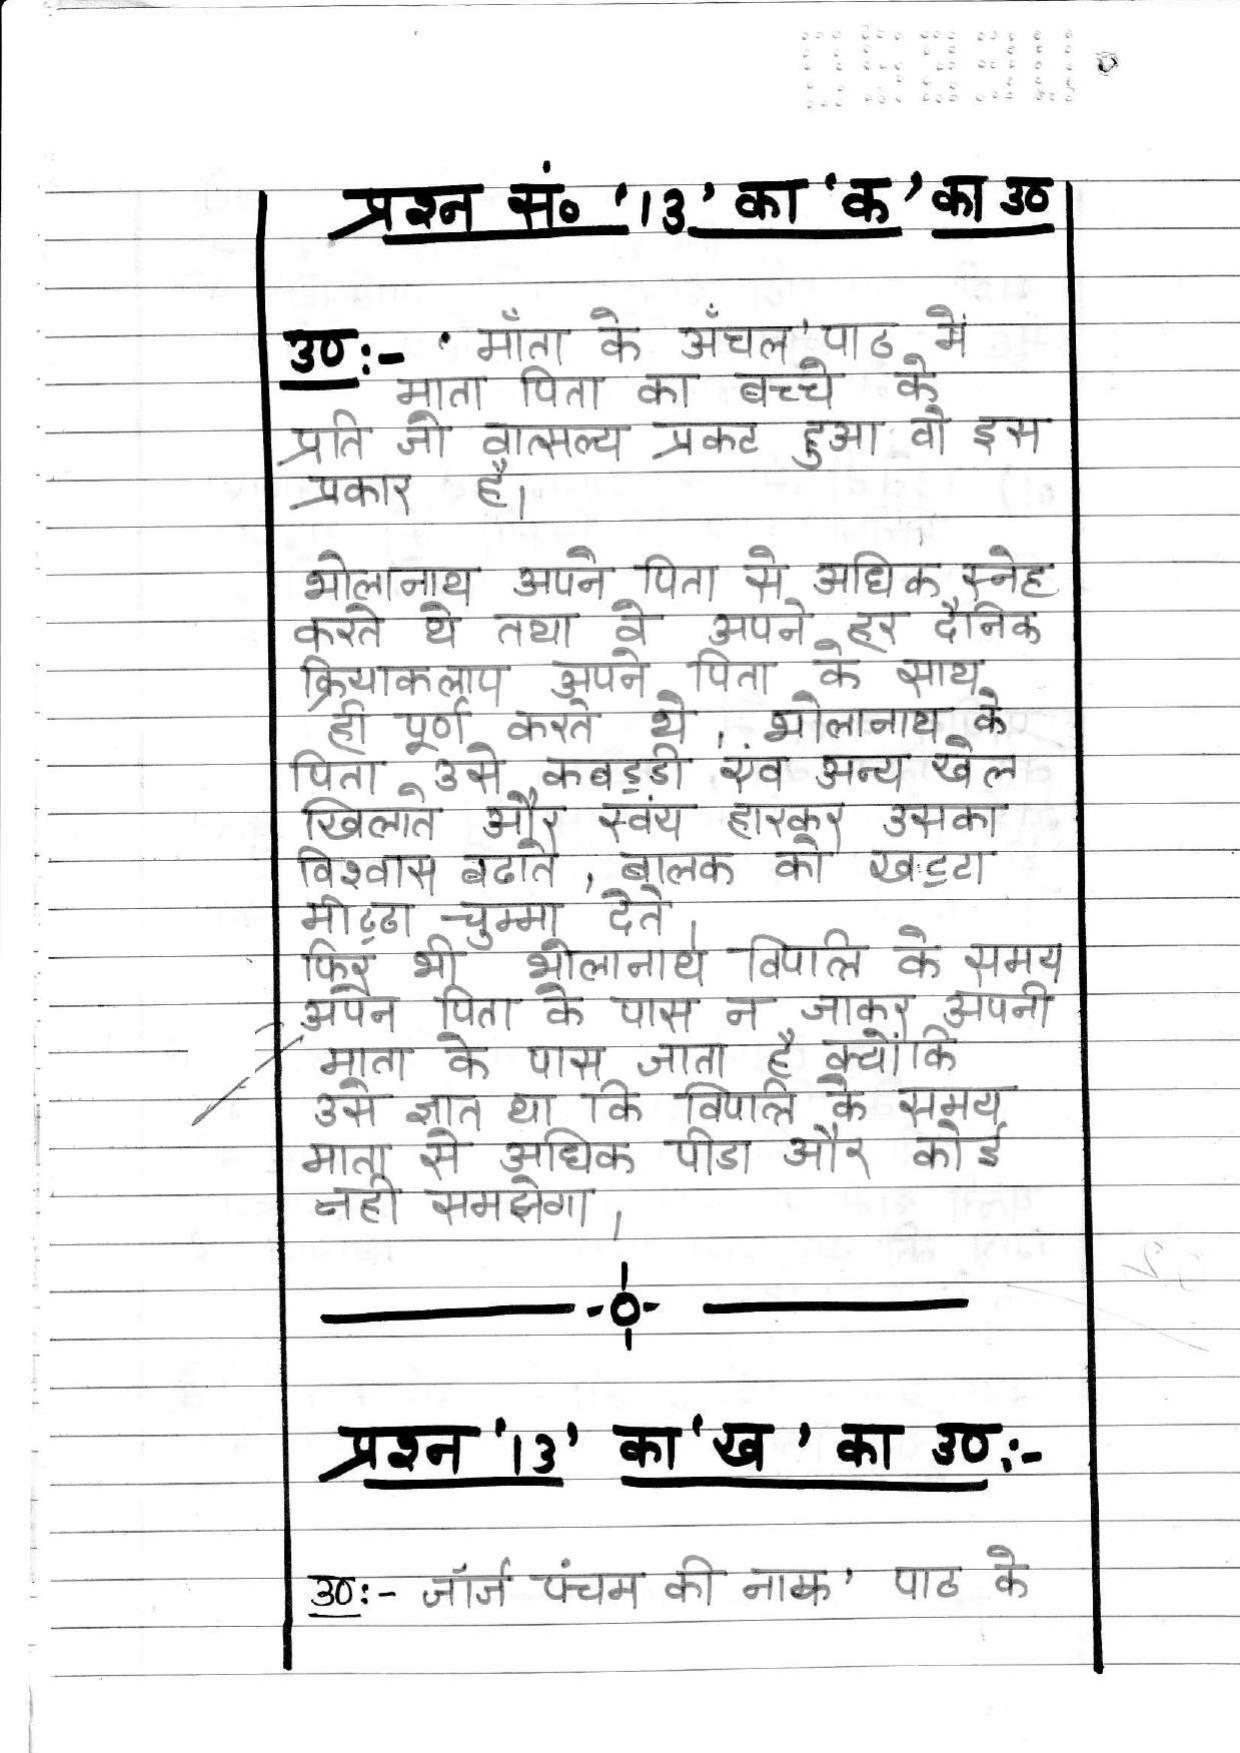 प्रश्न सं० '13' का 'क' का उ०
उ०:- 'माँता के अँचल' पाठ में
माता पिता का बच्चे के
प्रति जो वात्सल्य प्रकट हुआ वो इस
प्रकार है।
भोलानाथ अपने पिता से अधिक स्नेह
करते थे तथा वे अपने हर दैनिक
क्रियाकलाप अपने पिता के साथ
ही पूर्ण करते थे, भोलानाथ के
पिता उसे कबड्डी एंव अन्य खेल
खिलाते और स्वंय हारकर उसका
विश्वास बढाते, बालक को खट्टा
मीठ्ठा चुम्मा देते,
फिर भी भोलानाथ विपत्ति के समय
अपने पिता के पास न जाकर अपनी
माता के पास जाता है क्योंकि
उसे ज्ञात था कि विपत्ति के समय
माता से अधिक पीडा और कोई
नही समझेगा,
प्रश्न '13' का 'ख' का उ०:-
उ०:- जॉर्ज पंचम की नाक' पाठ के